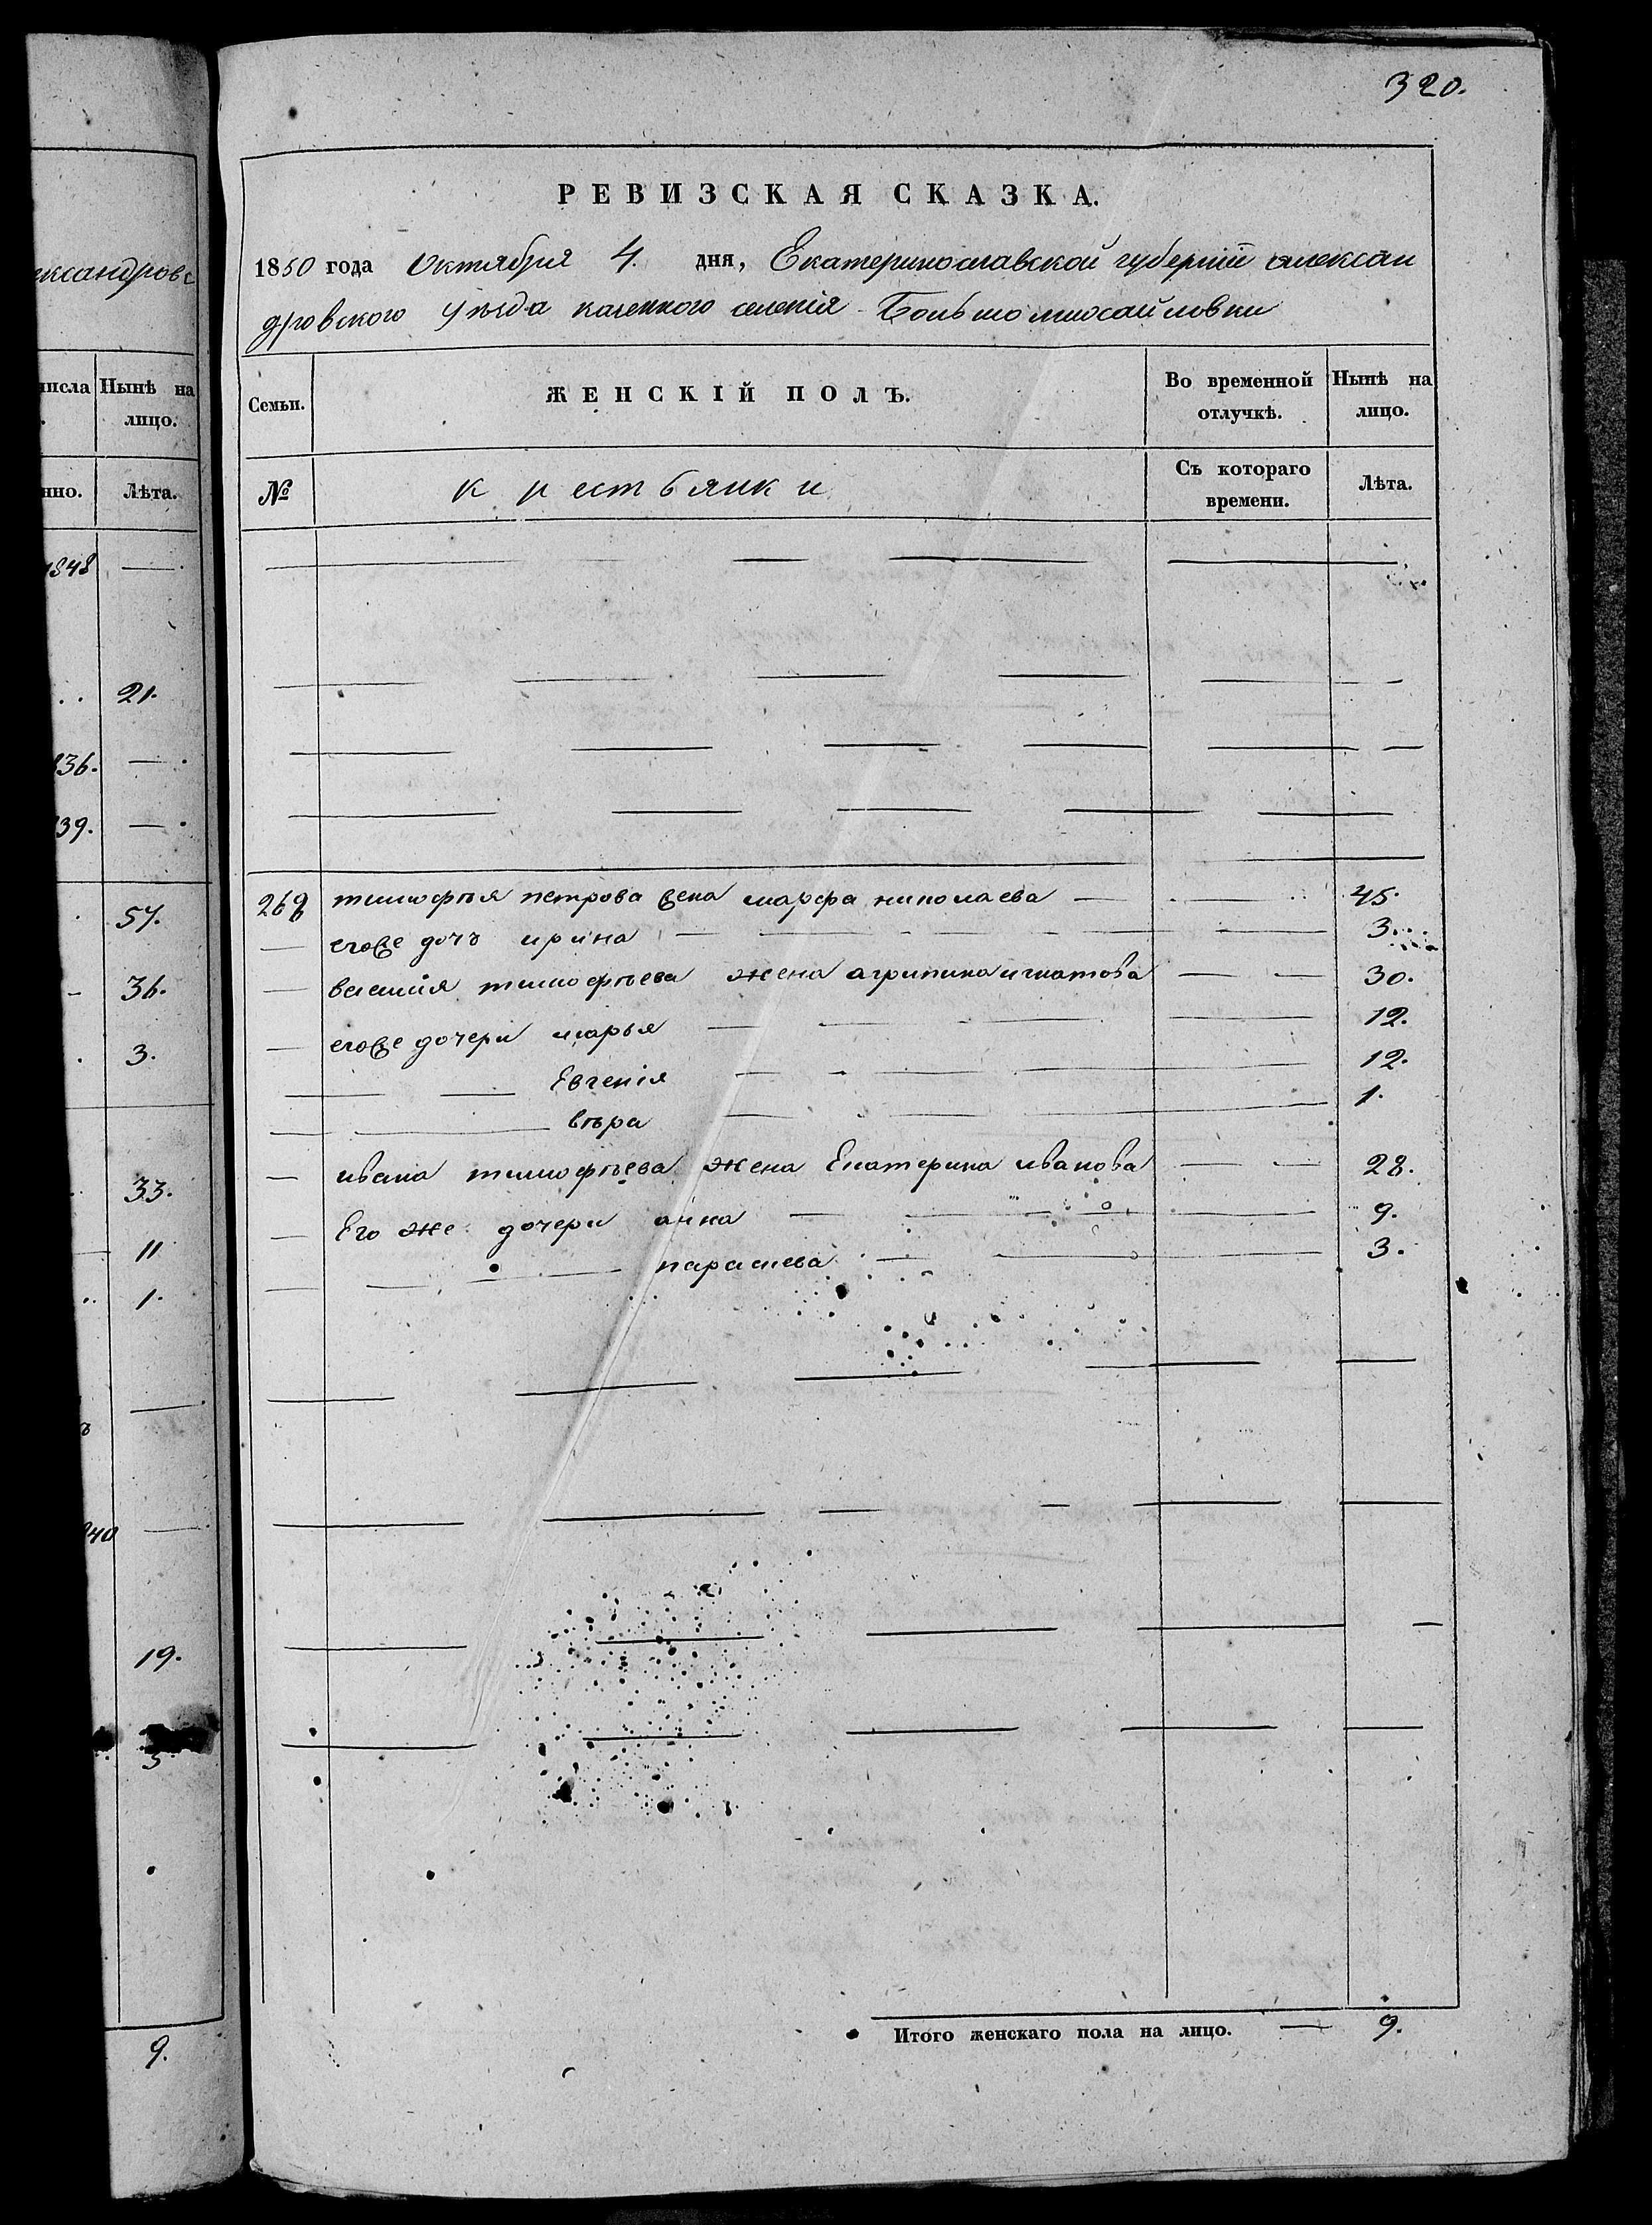 320.
РЕВИЗСКАЯ СКАЗКА.
1850 года Октября 4. дня, Екатеринославской губернiи алексан
дровского уѣзда казенного селенiя Большомихайловки
Семьи. ЖЕНСКIЙ ПОЛЪ. Во временной отлучкѣ. Нынѣ на лицо.
№ крестьянки Съ котораго времени. Лѣта.
тимофѣя петрова жена марфа николаева 45.
егоже дочъ ирина 3.
василiя тимофѣева жена агрипина игнатова 30.
егоже дочери марья 12.
Евгенiя 12.
вѣра 1.
ивана тимофѣева жена Екатерина иванова 28.
Его же дочери анна 9.
параскева 3.
Итого женскаго пола на лицо. 9.
ександровс
числа Нынѣ на лицо.
нно. Лѣта.
1848
21.
36.
39.
57.
36.
3.
33.
11
1.
840
19.
9.